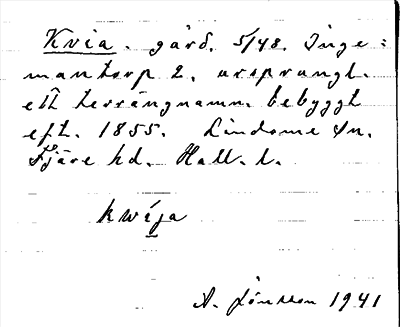 Kvia. gård. 5/48. Inge=
mantorp 2. ursprungl.
ett terrängnamn. bebyggt
eft. 1855. Lindome sn.
Fjäre hd. Hall. l.
kwija
A. Jönsson 1941